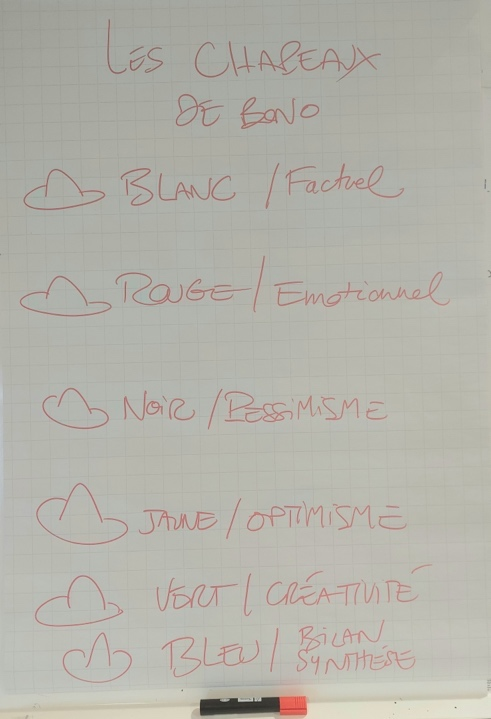 LES CHAPEAUX
DE BONO
BLANC / Factuel
ROUGE / Emotionnel
NOIR / PESSIMISME
JAUNE / OPTIMISME
VERT / CRÉATIVITÉ
BLEU / BILAN
SYNTHÈSE